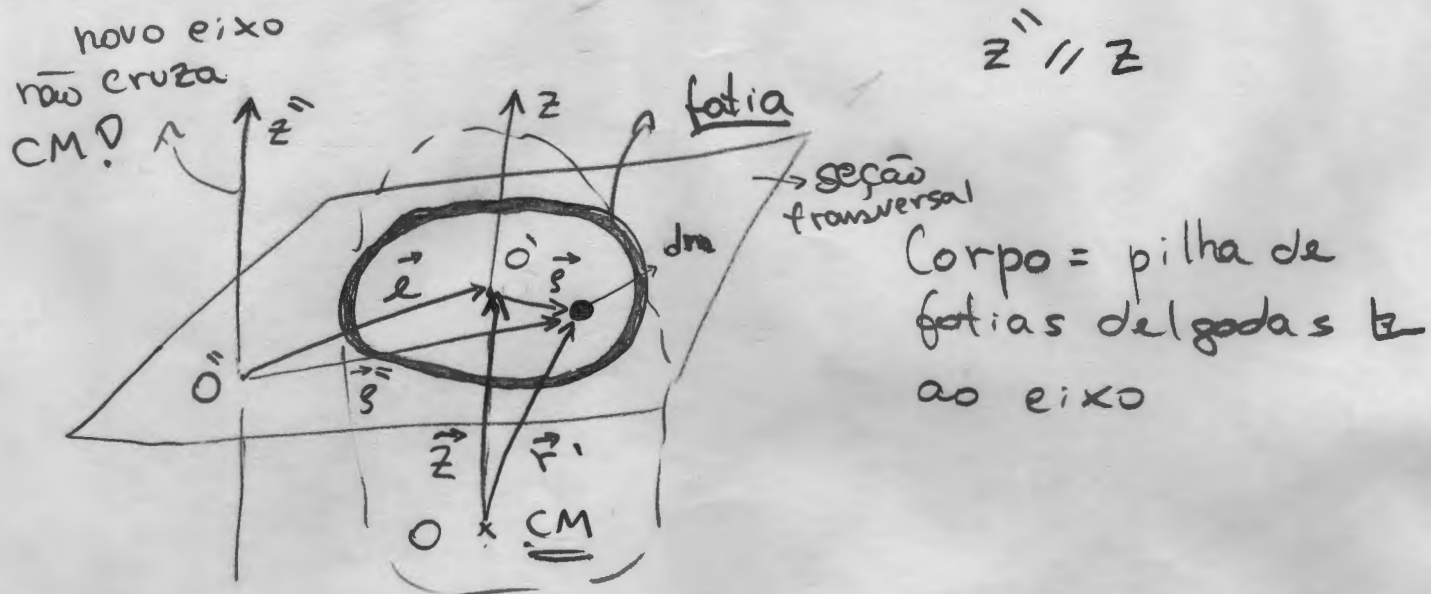 novo eixo
não cruza
CM!
z''
z
fatia
z'' // z
seção
transversal
dm
Corpo = pilha de
fatias delgadas ⊥
ao eixo
O'
O''
O
CM